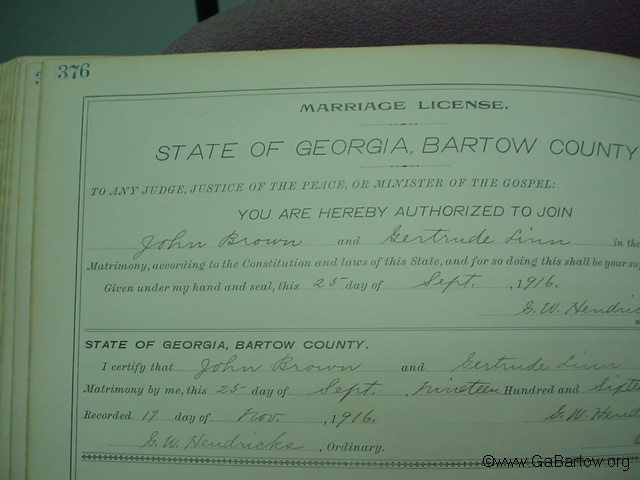 376
MARRIAGE LICENSE.
STATE OF GEORGIA, BARTOW COUNTY
TO ANY JUDGE, JUSTICE OF THE PEACE, OR MINISTER OF THE GOSPEL:
YOU ARE HEREBY AUTHORIZED TO JOIN
John Brown and Gertrude Linn in the
Matrimony, according to the Constitution and laws of this State, and for so doing this shall be your
Given under my hand and seal, this 25 day of Sept. , 1916.
G. W. Hendric
STATE OF GEORGIA, BARTOW COUNTY.
I certify that John Brown and Gertrude Linn
Matrimony by me, this 25 day of Sept. , nineteen Hundred and Sixte
Recorded 17 day of Nov. , 1916. G. W. Hend
G. W. Hendricks , Ordinary.
©www.GaBartow.org